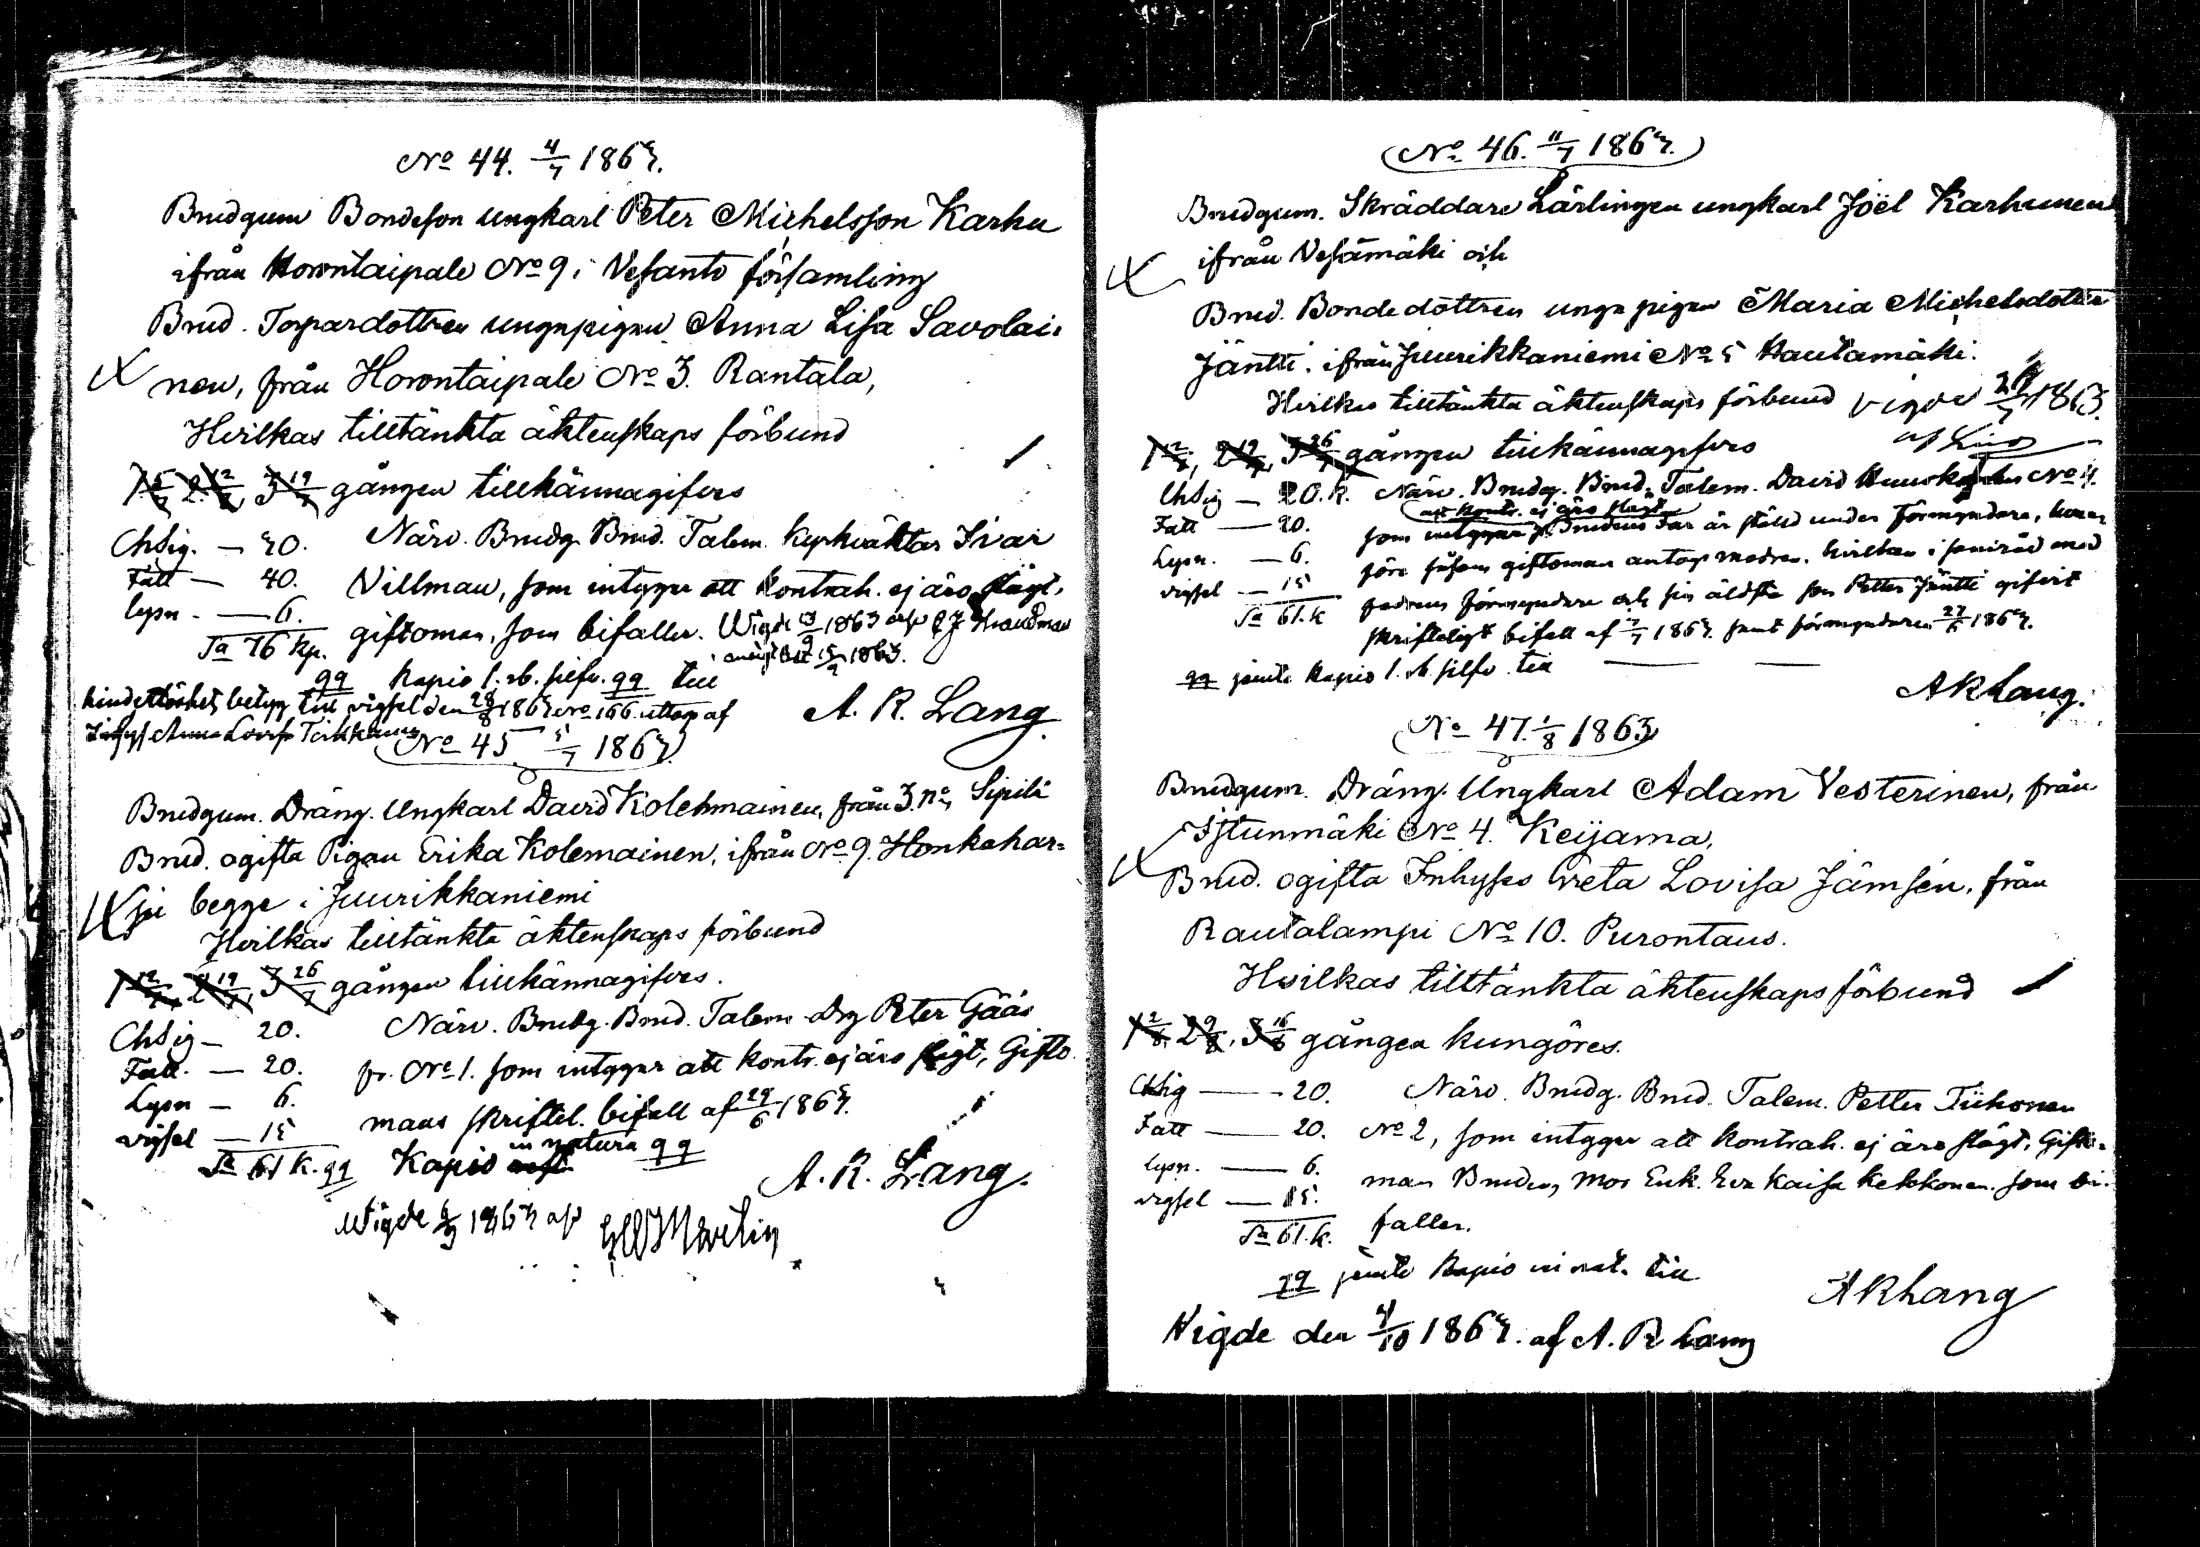 No 44. 4/7 1863.
Brudgum Bondeson ungkarl Peter Michelsson Karhu
ifrån Horontaipale No 9 i Vesanto församling
Brud. Torpardottren unga pigan Anna Lisa Savolai-
nen, från Horontaipale No 3. Rantala,
Hvilkas tilltänkta äktenskaps förbund
1 5/7, 2 12/7, 3 19/7 gången tillkännagifves
Chsig. — 30. Närv. Brudg. Brud. Talem. Kyrkväktar Ivar
Fatt — 40. Villman, som intygar att kontrah. ej äro slägt,
lysn. — 6. giftoman, som bifaller. Wigde 13/9 1863 af
Sa 76 kp. 15/9 1863.
qq Kapio 1. rb. silfv. qq till
hinderlöshets betyg till vigsel den 28/8 1863 No 166 uttogs af
Anna Lovisa
A. R. Lang
No 45 5/7 1863.
Brudgum. Dräng. Ungkarl David Kolehmainen, från 3. no, Sipilä
Brud. ogifta Pigan Erika Kolemainen, ifrån No 9. Honkahar-
ju begge i Juurikkaniemi
Hvilkas tilltänkta äktenskaps förbund
1 12/7, 2 19/7, 3 26/7 gången tillkännagifves.
Chsig — 20. Närv. Brudg. Brud. Talem. Drg Peter Gääs
Fatt. — 20. fr. No 1. som intygar att kontr. ej äro slägt, Gifto
Lysn — 6. mans skriftel. bifall af 29/6 1863.
vigsel — 15
Sa 61 k. qq Kapio in natura qq
A. R. Lang.
Wigde 6/9 1863 af Martin
No 46. 11/7 1863.
Brudgum. Skräddare Lärlingen ungkarl Joël Karhunen
ifrån Vesämäki och
Brud. Bondedottren unga pigan Maria Michelsdotter
Jäntti. ifrån Juurikkaniemi No 5 Hautamäki.
Hvilkas tilltänkta äktenskaps förbund vigde 1863.
1 12/7, 2 19/7, 3 26/7 gången tillkännagifves
Chsig — 20. k. Närv. Brudg. Brud. Talem. David No 4.
att kontr. ej äro slägt
Fatt — 20. som intygar Brudens Far är ställd under förmyndare,
Lysn. — 6. före såsom giftoman antogs modren, hvilken i samråd med
vigsel — 15 fadrens förmyndare och sin äldsta son Petter Jäntti gifvit
Sa 61. k skriftligt bifall af 7/7 1863. samt förmyndaren 27/6 1863.
qq jemte Kapio 1. rb. silfv. till
A R Lang.
No 47. 1/8 1863
Brudgum. Dräng. Ungkarl Adam Vesterinen, från
Istunmäki No 4. Keijama,
Brud. ogifta Inhyses Greta Lovisa Jämsén, från
Rautalampi No 10. Purontaus.
Hvilkas tilltänkta äktenskaps förbund
1 2/8, 2 9/8, 3 16/8 gången kungöres.
Chsig — 20. Närv. Brudg. Brud. Talem. Petter Tiihonen
Fatt — 20. No 2, som intygar att kontrah. ej äro slägt, Gifto-
lysn. — 6. man Brudens mor Enk. Eva Kaisa Kekkonen. som bi-
vigsel — 15.
Sa 61. k. faller.
qq jemte Kapio in nat. till
A R Lang
Vigde den 4/10 1863. af A. R Lang